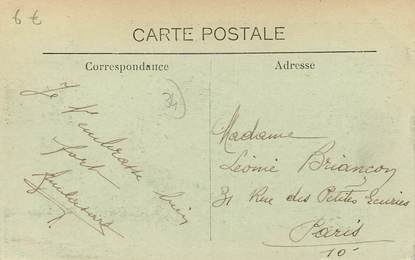 6 €
CARTE POSTALE
Correspondance
Adresse
Je t'embrasse bien
fort
Madame
Léonie Briançon
31 Rue des Petites Ecuries
Paris
10